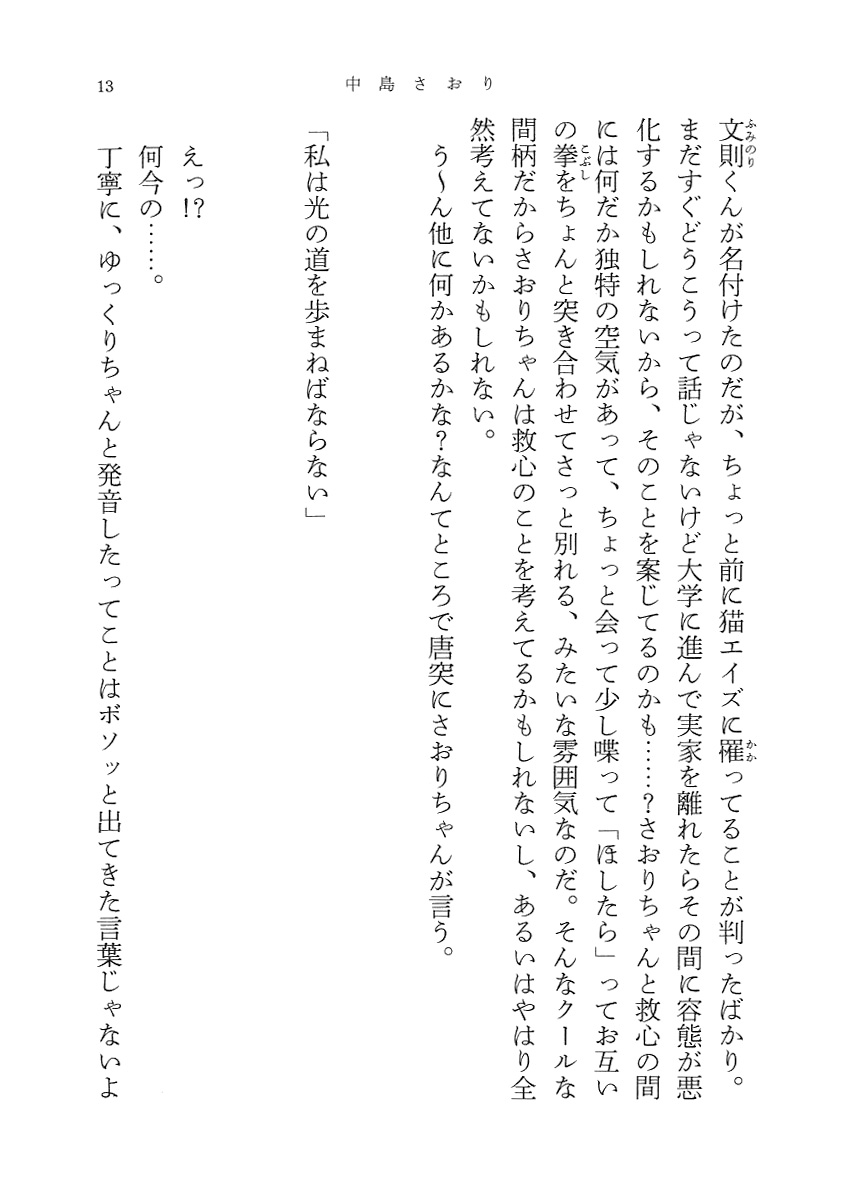 中島さおり
13
文則くんが名付けたのだが、ちょっと前に猫エイズに罹ってることが判ったばかり。
まだすぐどうこうって話じゃないけど大学に進んで実家を離れたらその間に容態が悪
化するかもしれないから、そのことを案じてるのかも……？さおりちゃんと救心の間
には何だか独特の空気があって、ちょっと会って少し喋って「ほしたら」ってお互い
の拳をちょんと突き合わせてさっと別れる、みたいな雰囲気なのだ。そんなクールな
間柄だからさおりちゃんは救心のことを考えてるかもしれないし、あるいはやはり全
然考えてないかもしれない。
う〜ん他に何かあるかな？なんてところで唐突にさおりちゃんが言う。
「私は光の道を歩まねばならない」
えっ!?
何今の……。
丁寧に、ゆっくりちゃんと発音したってことはボソッと出てきた言葉じゃないよ